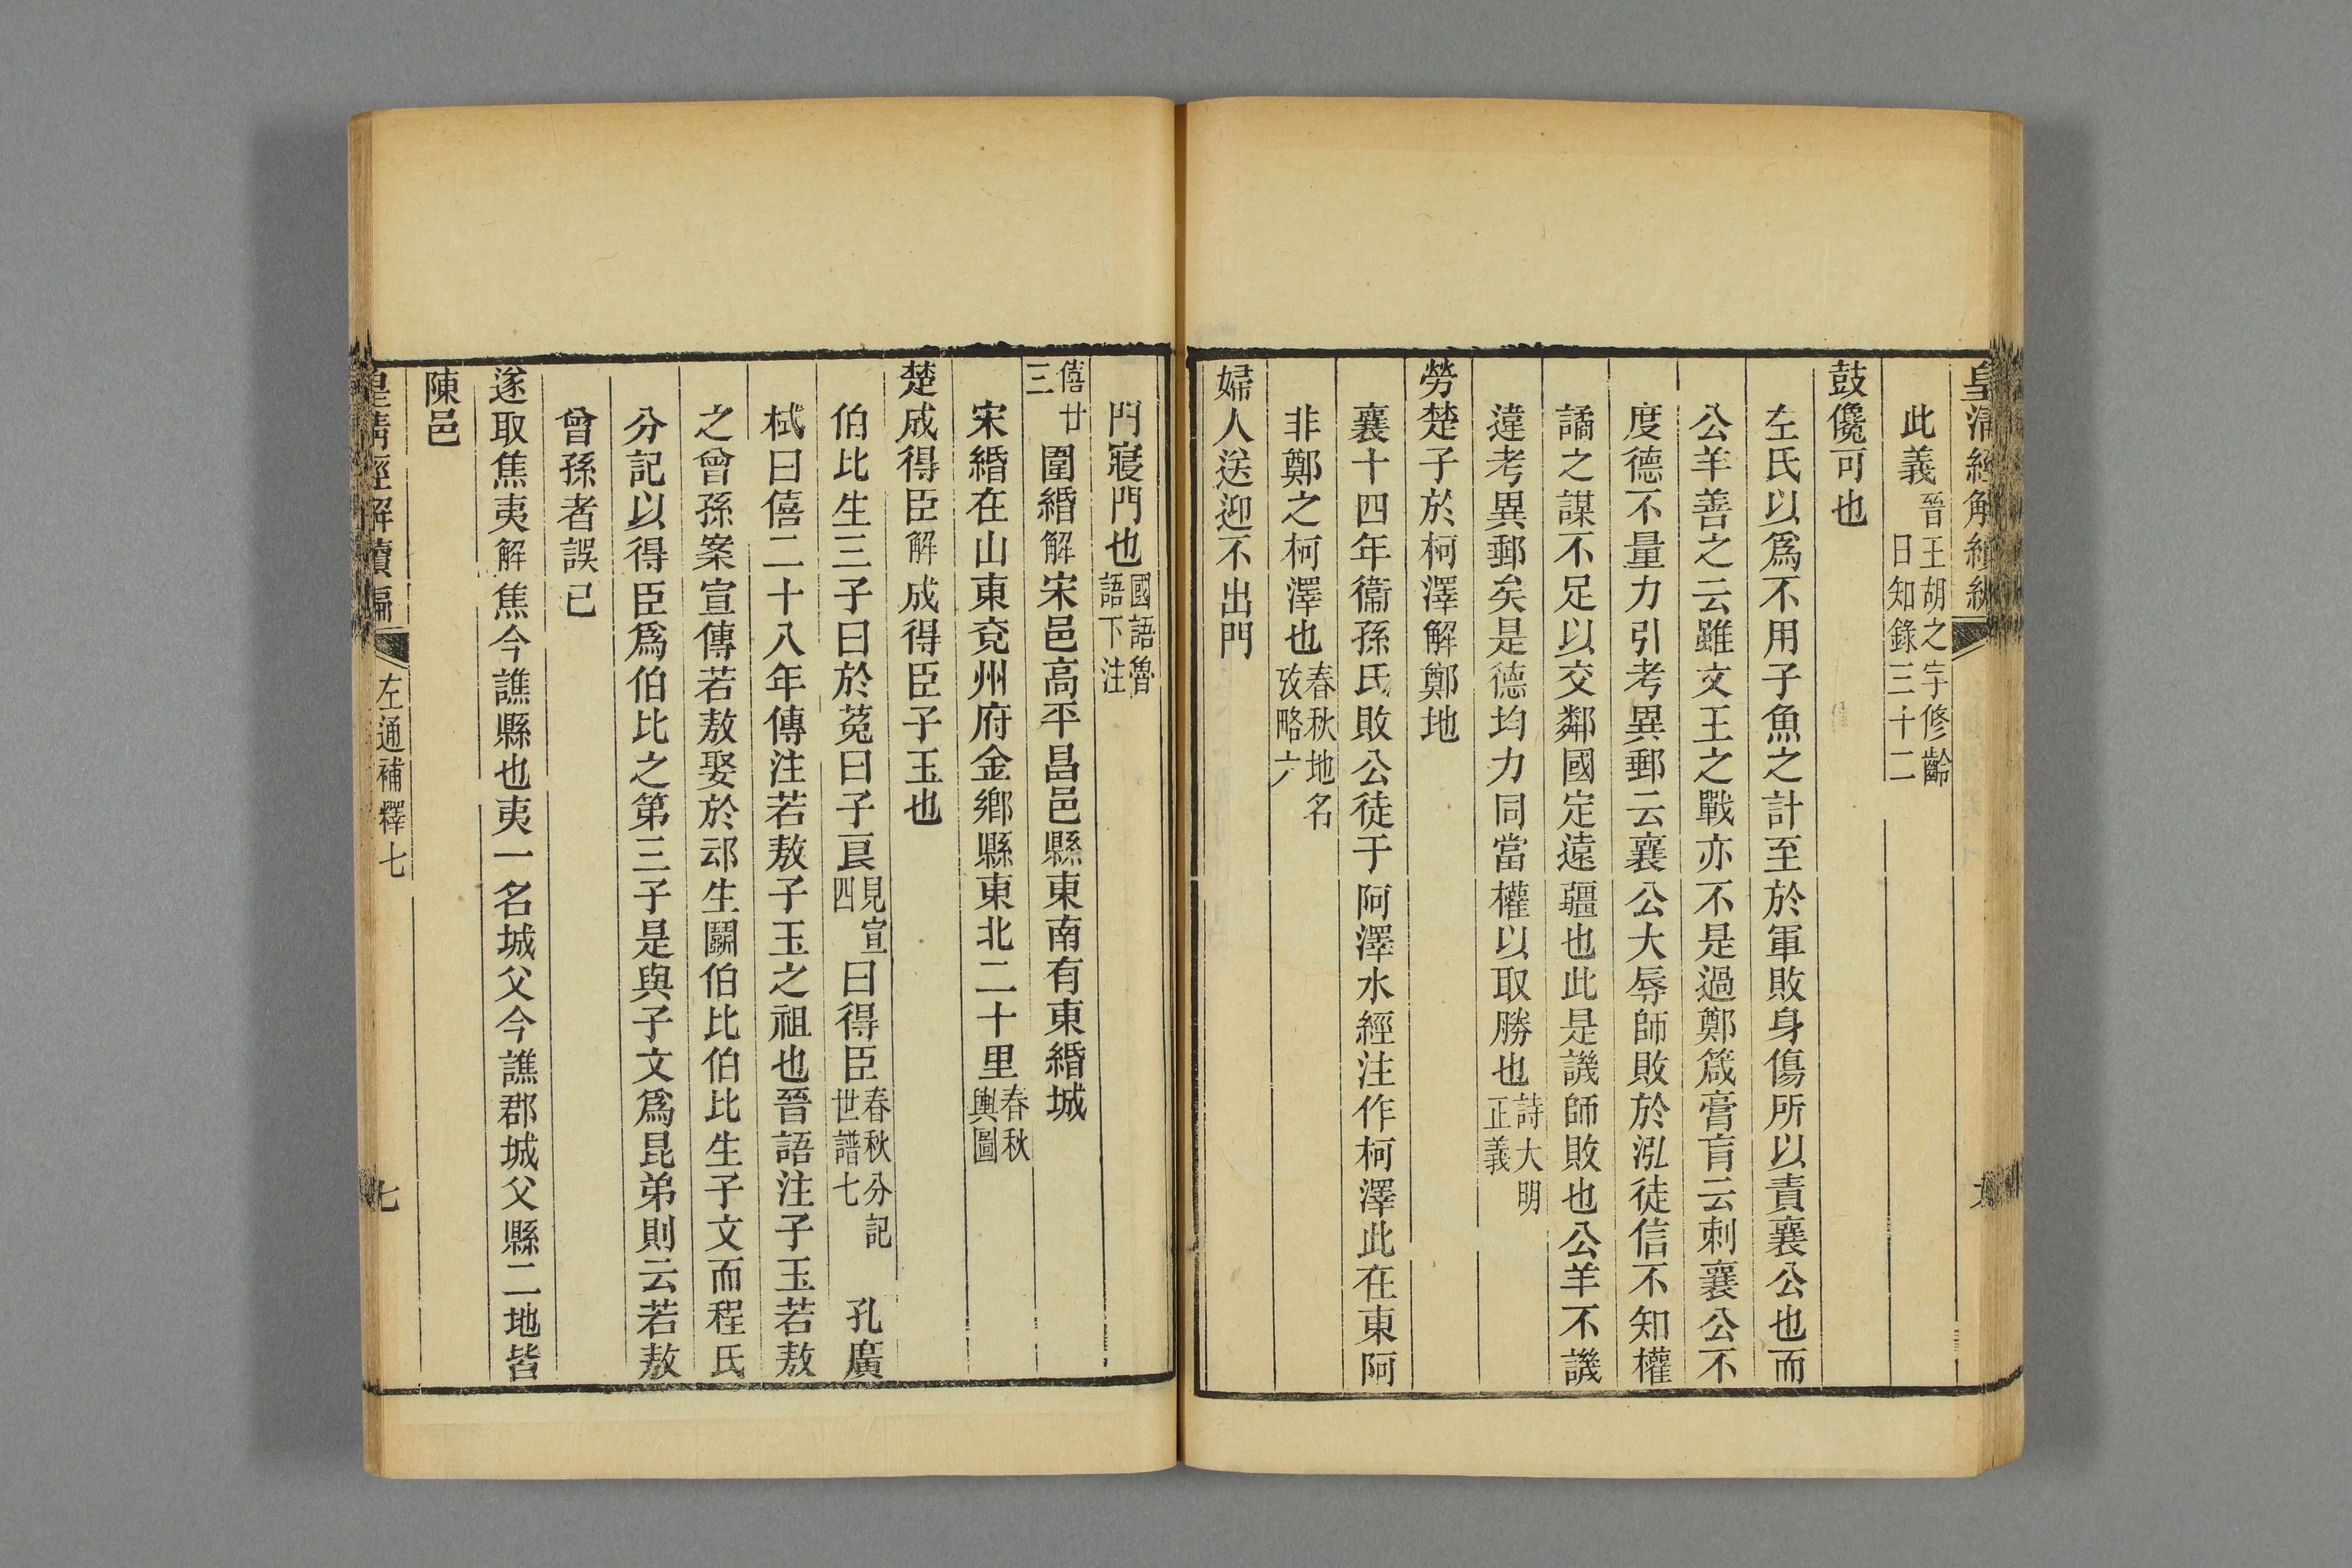 皇清經解續編
此義晉王胡之字修齡日知錄三十二
鼓儳可也
左氏以爲不用子魚之計至於軍敗身傷所以責襄公也而
公羊善之云雖文王之戰亦不是過鄭箴膏肓云刺襄公不
度德不量力引考異郵云襄公大辱師敗於泓徒信不知權
譎之謀不足以交鄰國定遠疆也此是譏師敗也公羊不譏
違考異郵矣是德均力同當權以取勝也詩大明正義
勞楚子於柯澤解鄭地
襄十四年衞孫氏敗公徒于阿澤水經注作柯澤此在東阿
非鄭之柯澤也春秋地名攷略六
婦人送迎不出門
門寢門也國語魯語下注
僖廿三圍緡解宋邑高平昌邑縣東南有東緡城
宋緡在山東兗州府金鄉縣東北二十里春秋輿圖
楚成得臣解成得臣子玉也
伯比生三子曰於菟曰子良見宣四曰得臣春秋分記世譜七 孔廣
栻曰僖二十八年傳注若敖子玉之祖也晉語注子玉若敖
之曾孫案宣傳若敖娶於䢵生鬬伯比伯比生子文而程氏
分記以得臣爲伯比之第三子是與子文爲昆弟則云若敖
曾孫者誤已
遂取焦夷解焦今譙縣也夷一名城父今譙郡城父縣二地皆
陳邑
皇清經解續編 左通補釋七 七